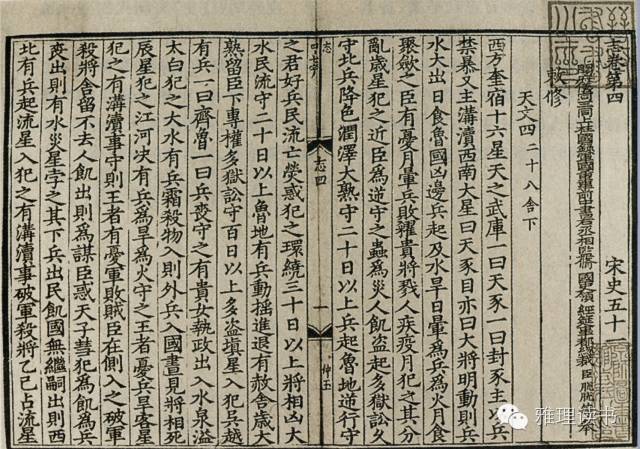 志卷第四 宋史五十一
開府儀同三司上柱國錄軍國重事前中書右丞相監脩國史領經筵事都總裁臣脫脫等奉
敕修
天文四 二十八舍下
西方奎宿十六星天之武庫一曰天豕一曰封豕主以兵
禁暴又主溝瀆西南大星曰天豕目亦曰大將明動則兵
水大出日食魯國凶邊兵起及水旱日暈爲兵爲火月食
聚斂之臣有憂月暈兵敗糴貴將戮人疾疫月犯之其分
亂歲星犯之近臣爲逆守之蟲爲災人飢盜起多獄訟久
守北兵降色潤澤大熟守二十日以上兵起魯地逆行守
志
志四
仲玉
之君好兵民流亡熒惑犯之環繞三十日以上將相凶大
水民流守二十日以上魯地有兵動搖進退有赦舍歲大
熟留臣下專權多獄訟守百日以上多盜塡星入犯吳越
有兵一曰齊魯一曰兵喪守之有貴女執政出入水泉溢
太白犯之大水有兵霜殺物入則外兵入國晝見將相死
辰星犯之江河決有兵爲旱爲火守之王者憂兵旱客星
犯之有溝瀆事守則王者有憂軍敗賊臣在側入之破軍
殺將舍留不去人飢出則爲謀臣惑天子彗犯爲飢爲兵
喪出則有水災星孛之其下兵出民飢國無繼嗣出則西
北有兵起流星入犯之有溝瀆事破軍殺將乙巳占流星
雅理读书